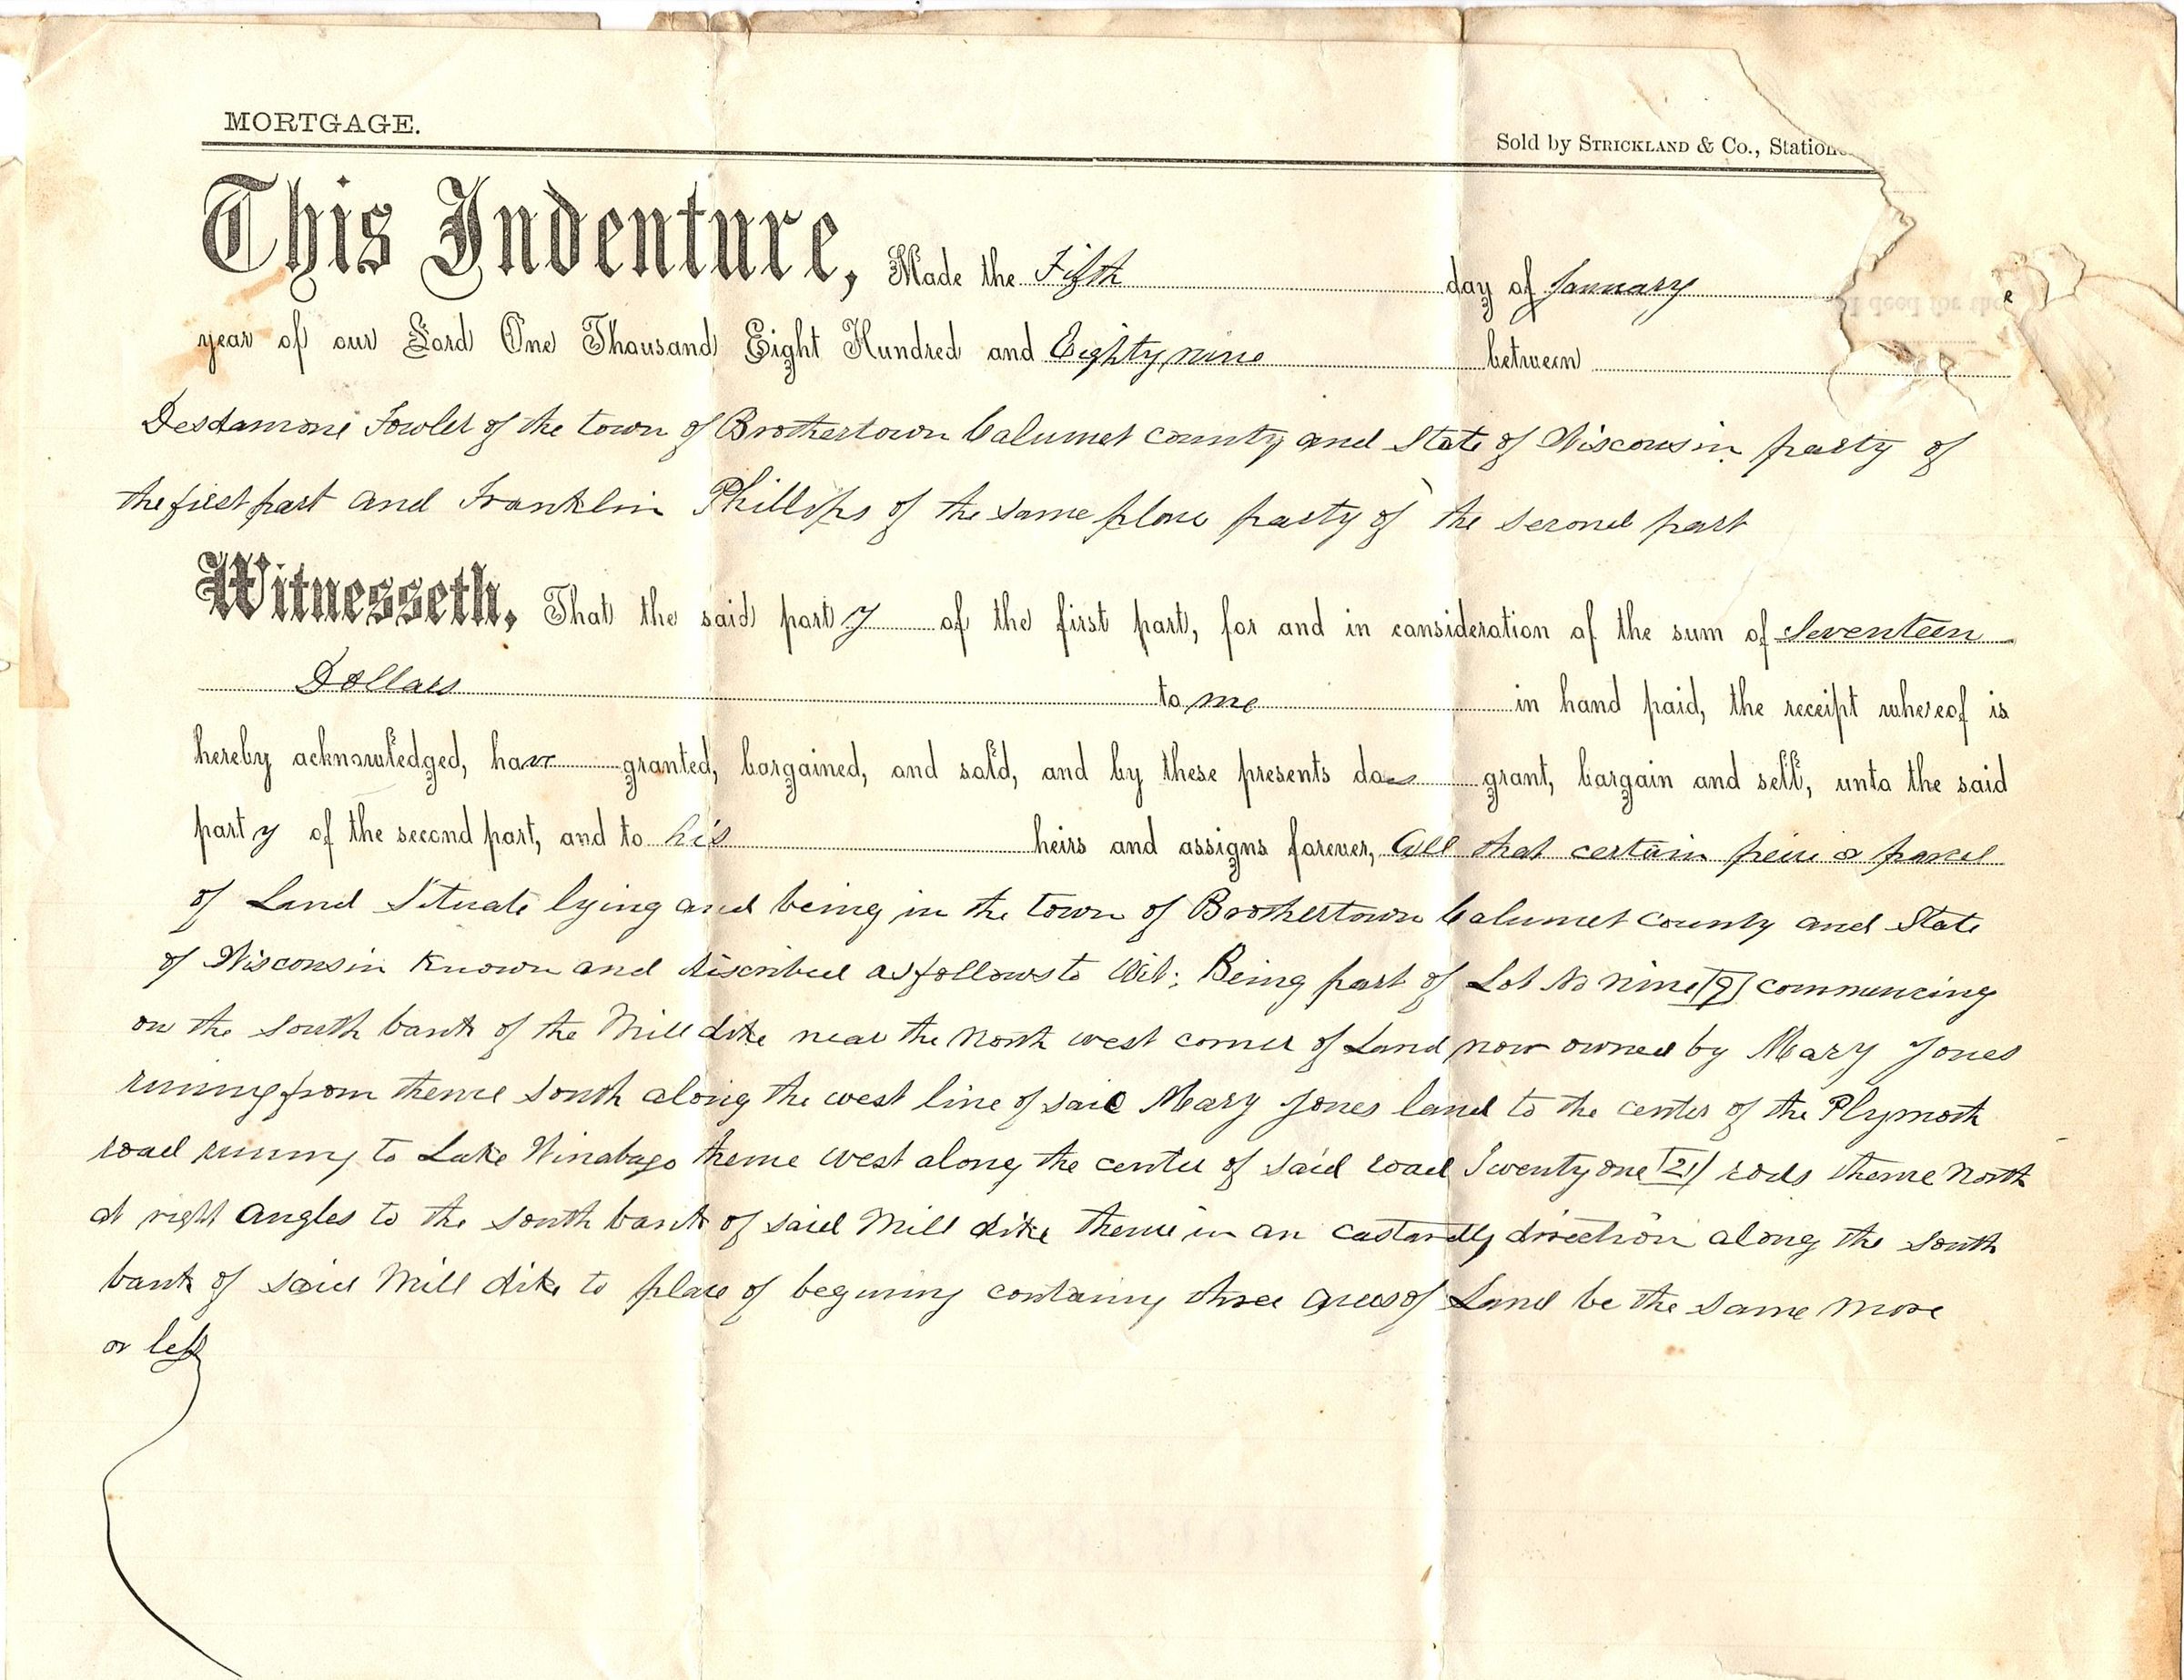 MORTGAGE.
Sold by STRICKLAND & Co., Station
This Indenture, Made the Fifth day of January
year of our Lord One Thousand Eight Hundred and Eighty nine between
Desdamone Fowler of the town of Brothertown Calumet county and State of Wisconsin party of
the first part and Franklin Phillips of the same place party of the second part
Witnesseth, That the said party of the first part, for and in consideration of the sum of Seventeen
Dollars to me in hand paid, the receipt whereof is
hereby acknowledged, have granted, bargained, and sold, and by these presents does grant, bargain and sell, unto the said
party of the second part, and to his heirs and assigns forever, All that certain peice or parcel
of Land Situate lying and being in the town of Brothertown Calumet County and State
of Wisconsin Known and discribed as follows to Wit: Being part of Lot No nine [9] commencing
on the south bank of the Mill dike near the North west corner of Land now owned by Mary Jones
runing from thence South along the west line of said Mary Jones land to the center of the Plymoth
road runing to Lake Winabago thence west along the center of said road Twenty one [21] rods thence North
at right angles to the south bank of said Mill dike thence in an eastardly direction along the south
bank of said Mill dike to place of begining containing three acres of Land be the same more
or less